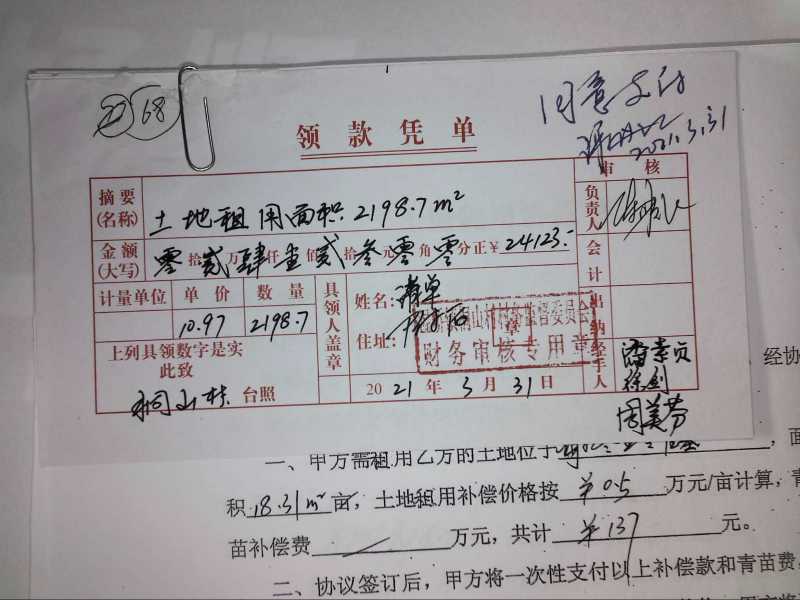 68
同意支付
2021.3.31
领款凭单
审核
摘要(名称) 土地租用面积2198.7m²
负责人
金额(大写) 零拾贰万肆仟壹佰贰拾叁元零角零分正¥24123.-
会计
计量单位 单价 数量
10.97 2198.7
具领人盖章
姓名: 清单
住址:
出纳
财务审核专用章
上列具领数字是实
此致
桐山村 台照
2021年3月31日
经手人
徐剑
周美芬
经协
一、甲方需租用乙方的土地位于
,面
积18.31m²亩,土地租用补偿价格按¥0.5万元/亩计算,青
苗补偿费 万元,共计¥137元。
二、协议签订后,甲方将一次性支付以上补偿款和青苗费,